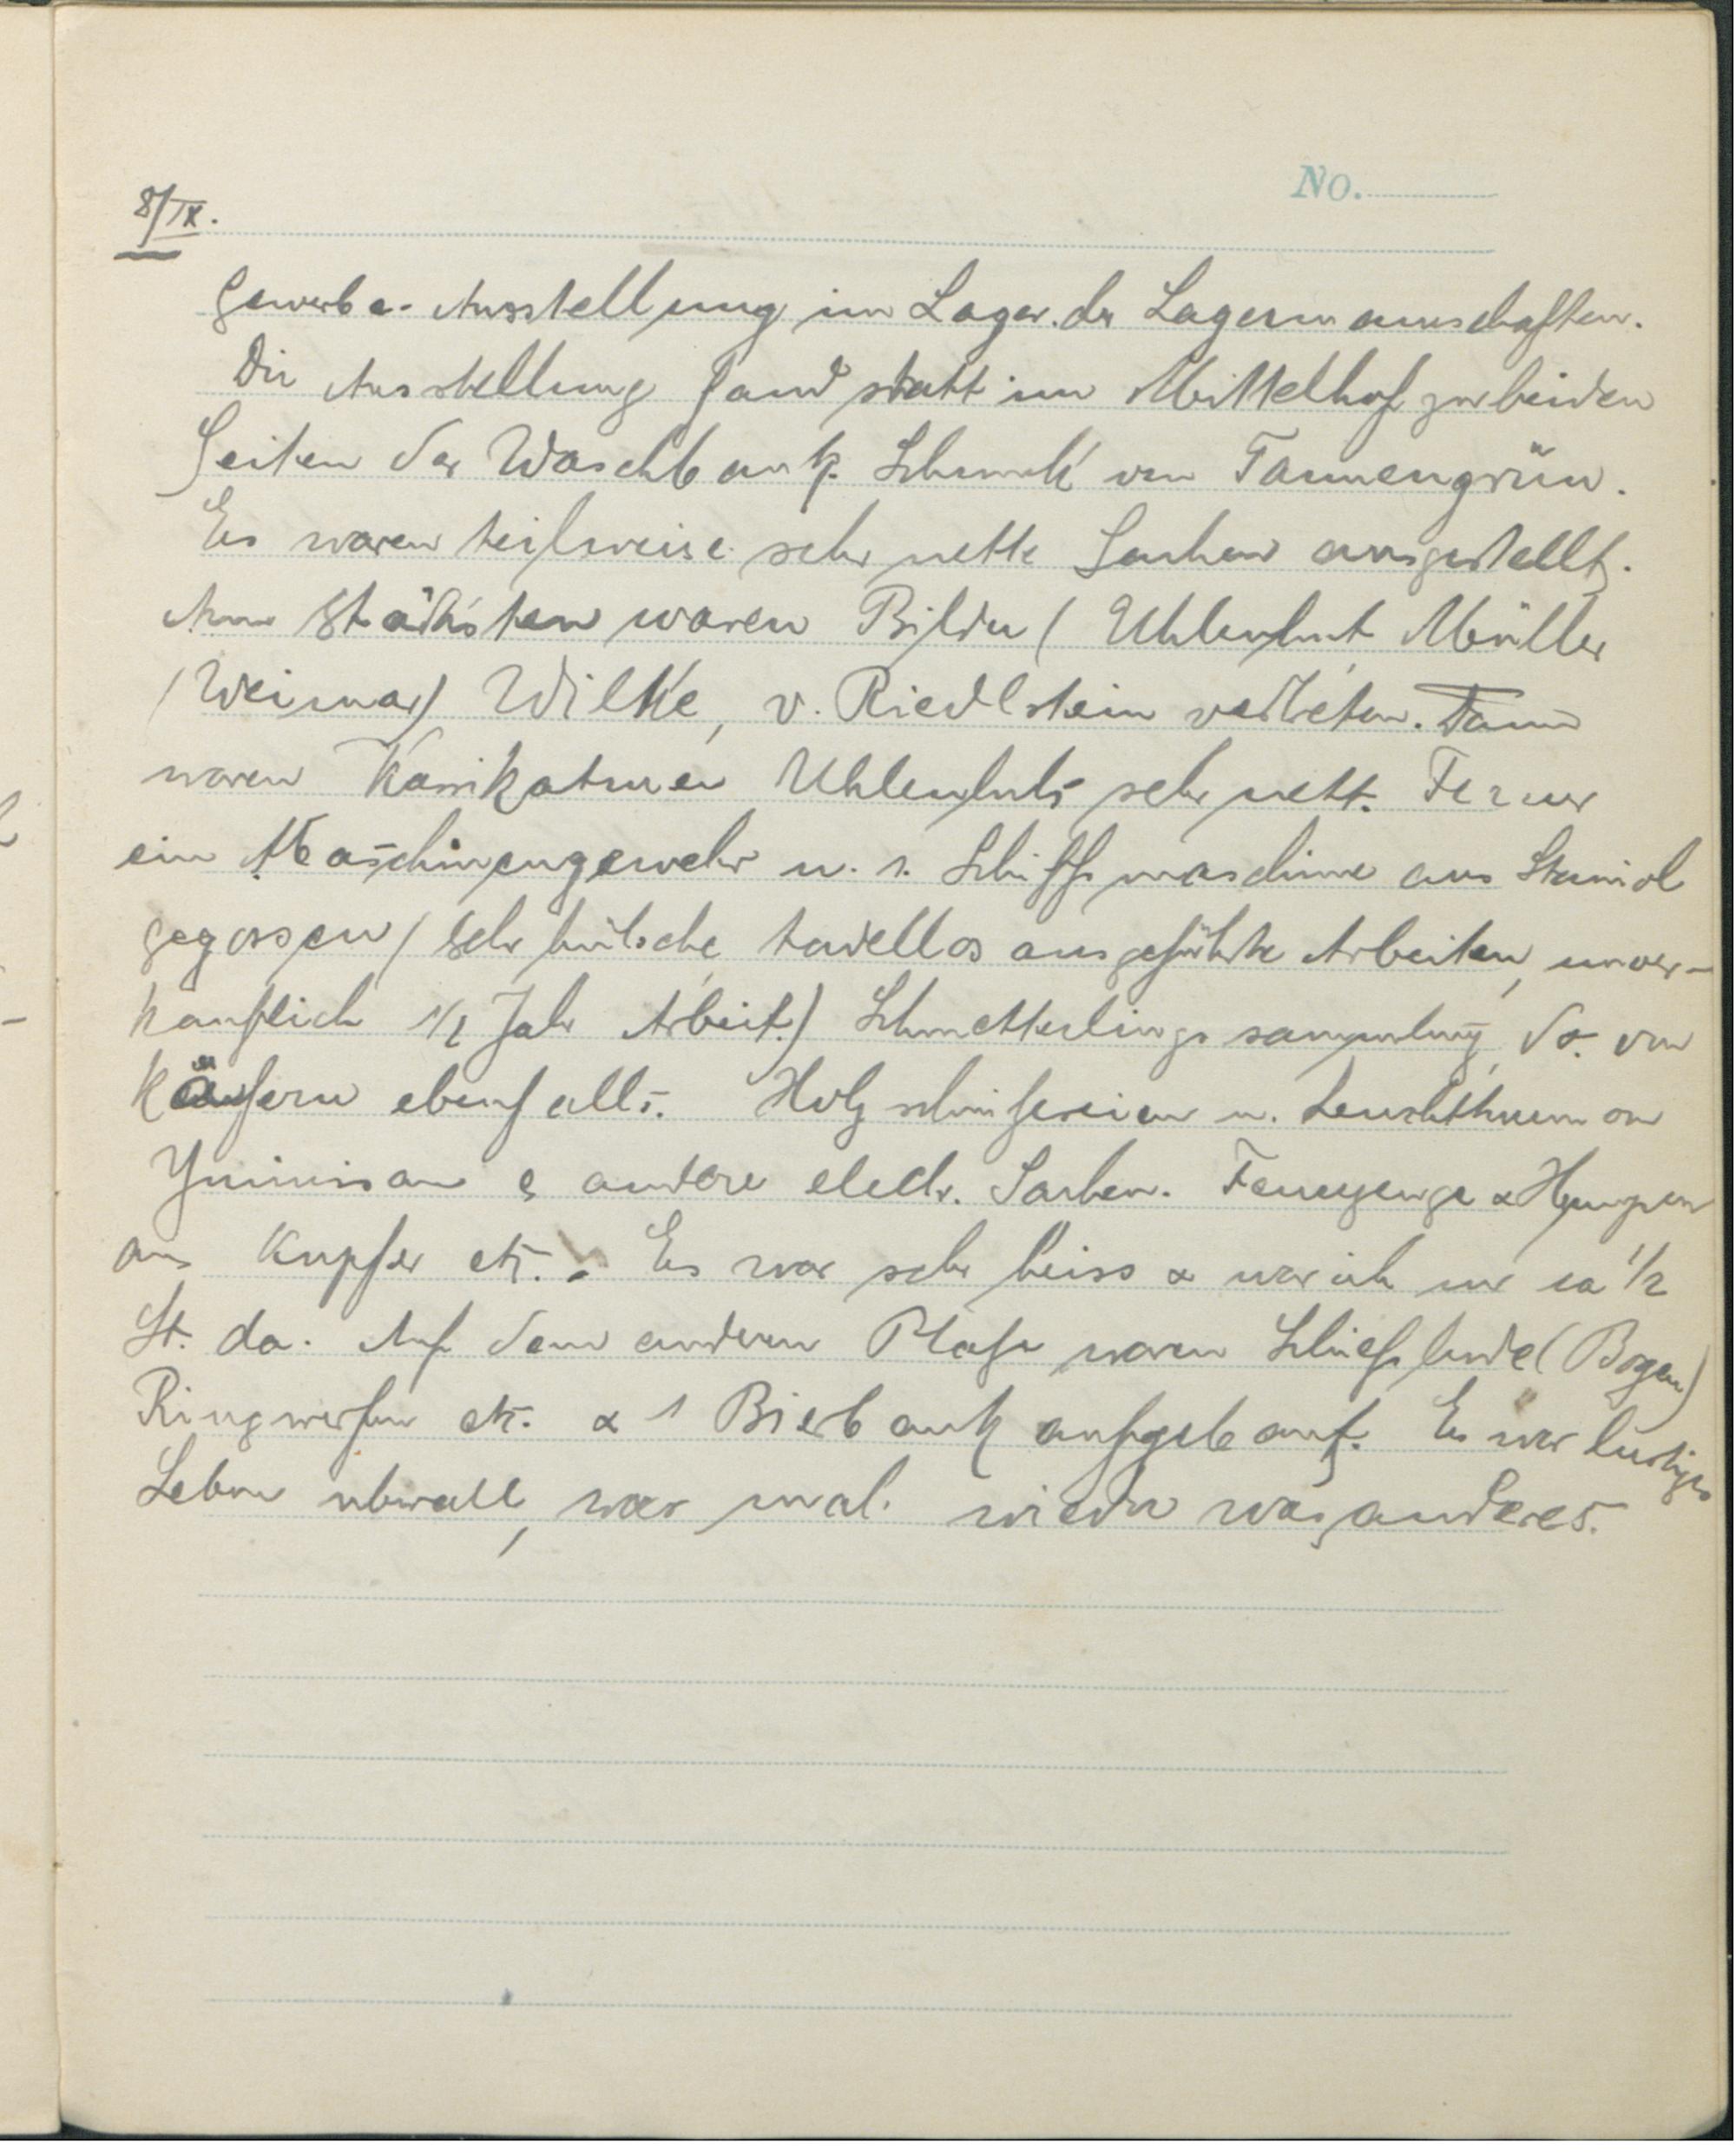 No.
8/IX.
Gewerbe-Ausstellung im Lager der Lagermannschaften.
Die Ausstellung fand statt im Mittelhof zu beiden
Seiten der Waschbank. Schmuck von Tannengrün.
Es waren teilweise sehr nette Sachen ausgestellt.
Am stärksten waren Bilder (Uhlenhut Müller
(Weimar) Wilke, v. Riedlstein vertreten. Dann
waren Karrikaturen Uhlenhuts sehr nett. Ferner
ein Maschinengewehr u. 1. Schiffsmaschine aus Staniol
gegossen (sehr hübsche, tadellos ausgeführte Arbeiten, unver-
kauflich 1/2 Jahr Arbeit.) Schmetterlingssammlung, do. von
Käfern ebenfalls. Holzschnitzereien u. Leuchtthurm von
& andere electr. Sachen. Feuerzeuge & Humpen
aus Kupfer etc. - Es war sehr heiss & war ich nur ca 1/2
St. da. Auf dem anderen Platze waren Schiessbude (Bogen)
Ringwerfen etc. & 1 Bierbank aufgebaut. Es war lustiges
Leben uberall, war mal wieder was anderes.